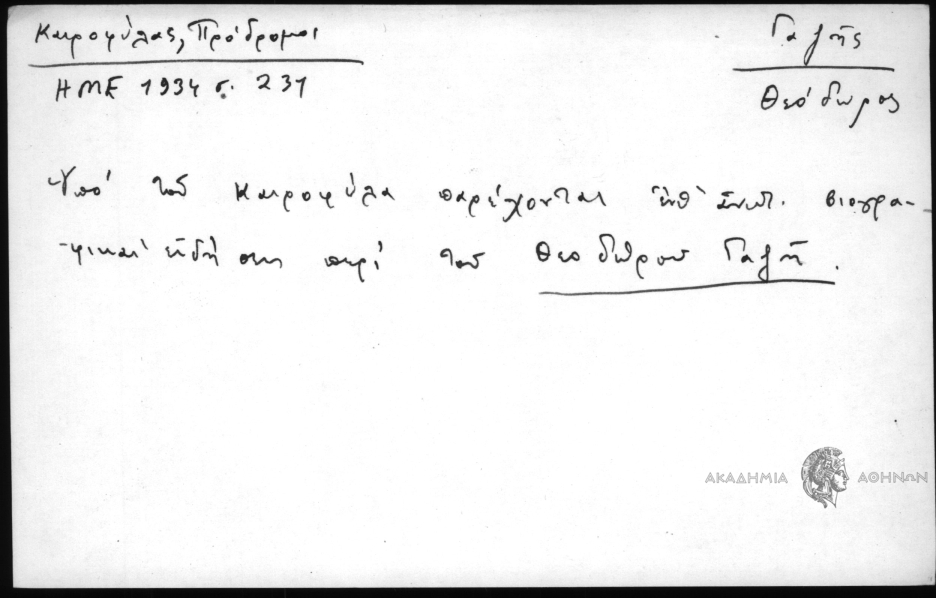 Καιροφύλας, Πρόδρομοι
ΗΜΕ 1934 σ. 231
Γαζῆς
Θεόδωρος
Ὑπό τοῦ Καιροφύλα παρέχονται βιογρα-
φικαί εἰδήσεις περί τοῦ Θεοδώρου Γαζῆ.
ΑΚΑΔΗΜΙΑ ΑΘΗΝΩΝ